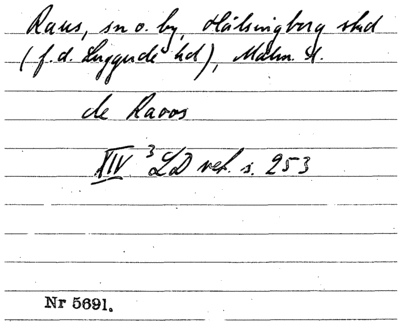 Raus, sn o. by, Hälsingborg stad
(f.d. Luggude hd), Malm. l.
de Raoos
XIV ³ LD vet. s. 253
Nr 5691.